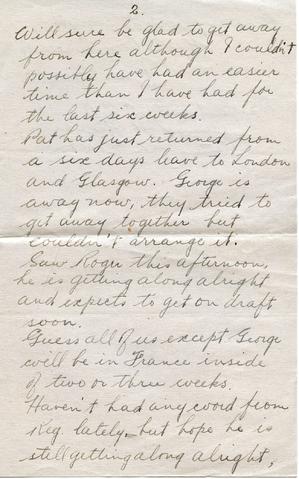 2.
Will sure be glad to get away
from here although I couldn't
possibly have had an easier
time than I have had for
the last six weeks.
Pat has just returned from
a six days leave to London
and Glasgow. George is
away now, they tried to
get away together but
couldn't arrange it.
Saw Roger this afternoon,
he is getting along alright
and expects to get on draft
soon.
Guess all of us except George
will be in France inside
of two or three weeks.
Haven't had any word from
Reg. lately, but hope he is
still getting along alright,